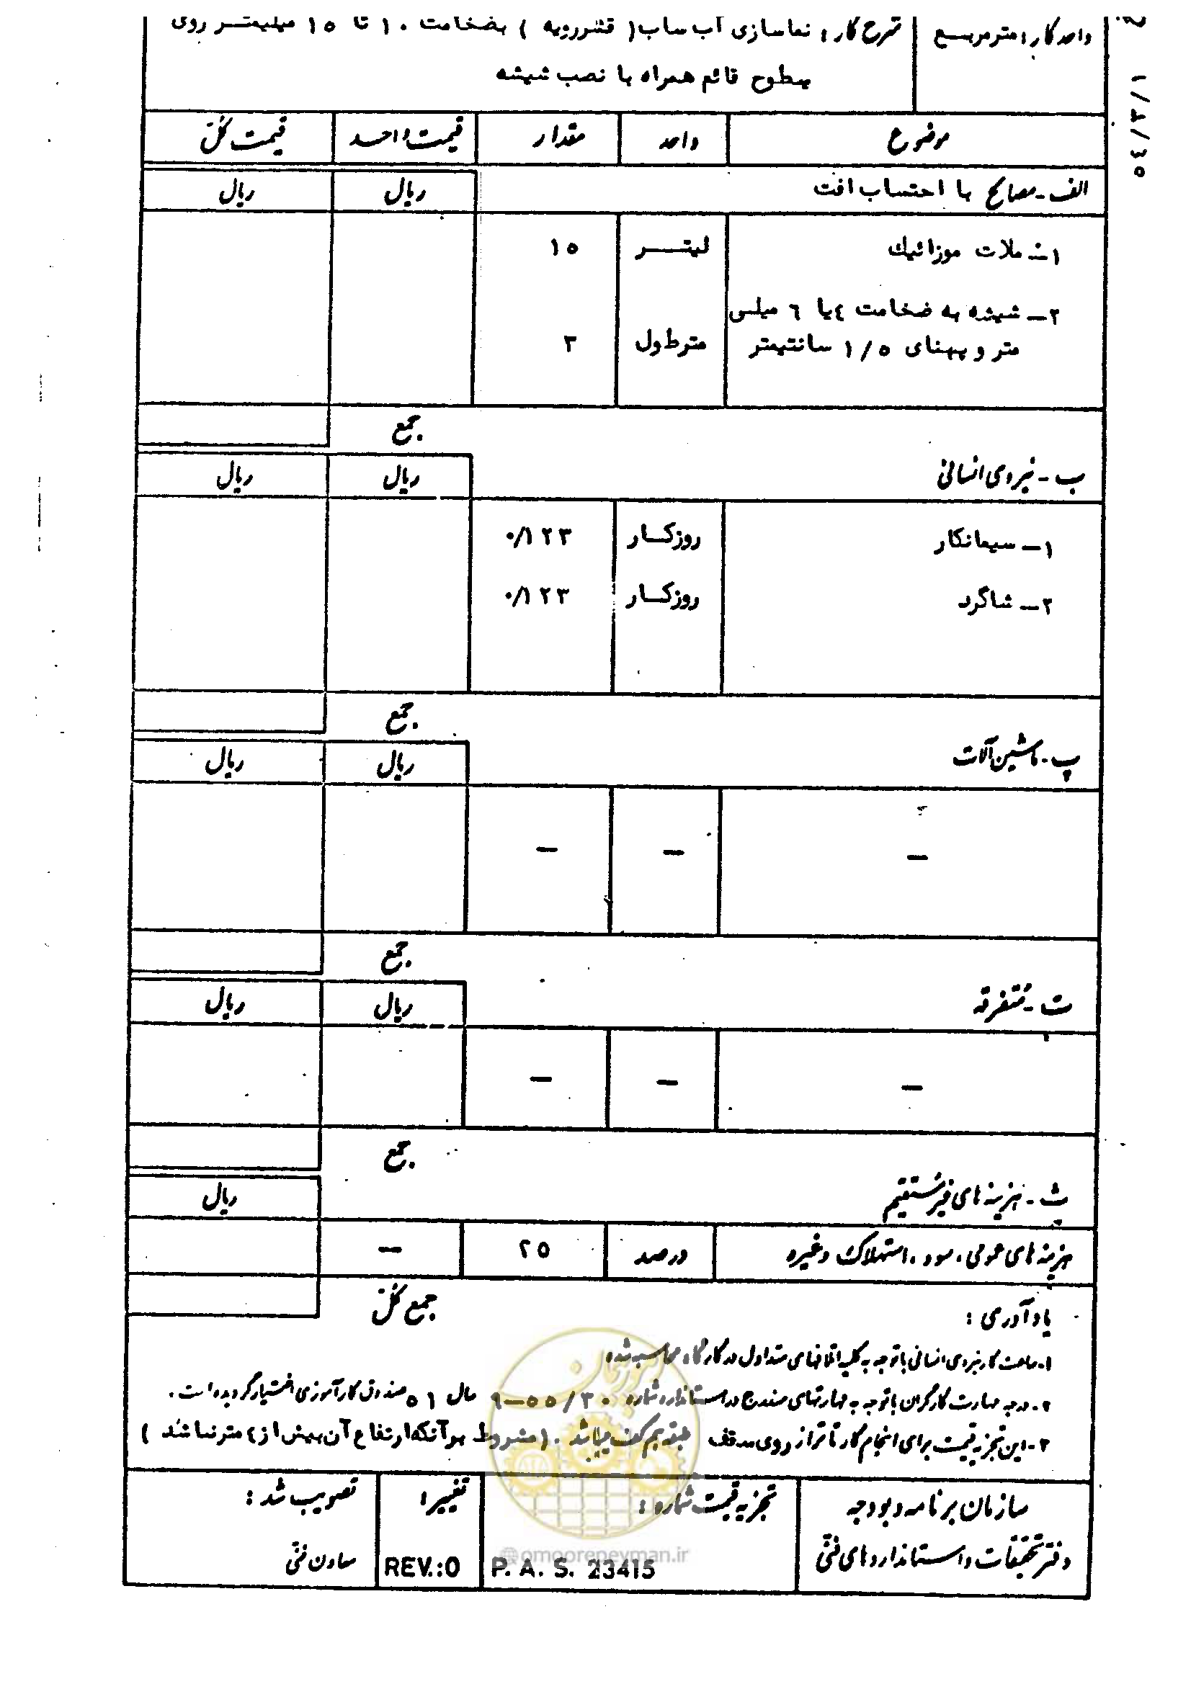 واحد کار : مترمربع شرح کار : نماسازی آب ساب ( قشررویه ) بضخامت ۱۰ تا ۱۵ میلیمتر روی
سطوح قائم همراه با نصب شیشه
۱/۳/۴۵
موضوع واحد مقدار قیمت واحد قیمت کل
الف - مصالح با احتساب افت ریال ریال
۱ - ملات موزائیک لیتر ۱۵
۲ - شیشه به ضخامت ۴ یا ۶ میلی
متر و پهنای ۱/۵ سانتیمتر مترطول ۳
جمع
ب - نیروی انسانی ریال ریال
۱ - سیمانکار روزکار ۰/۱۲۳
۲ - شاگرد روزکار ۰/۱۲۳
جمع
پ - ماشین آلات ریال ریال
— — —
جمع
ت - متفرقه ریال ریال
— — —
جمع
ث - هزینه های غیرمستقیم ریال
هزینه های عمومی ، سود ، استهلاک وغیره درصد ۲۵ —
جمع کل
یادآوری :
۱- ساعت کار نیروی انسانی با توجه به کلیه اتلافهای متداول در کارگاه محاسبه شده
۲- درجه مهارت کارگران با توجه به مهارتهای مندرج در استاندارد شماره ۳۰/۵۵-۹ سال ۵۱ صندوق کارآموزی اختیار گردیده است .
۳- این تجزیه قیمت برای انجام کار تا تراز روی سقف طبقه هم کف میباشد . ( مشروط بر آنکه ارتفاع آن بیش از ۴ متر نباشد )
سازمان برنامه و بودجه تجزیه قیمت شماره : تغییر : تصویب شد :
دفتر تحقیقات و استانداردهای فنی P. A. S. 23415 REV.:0 معاون فنی
امور پیمان
@omoorepeyman.ir